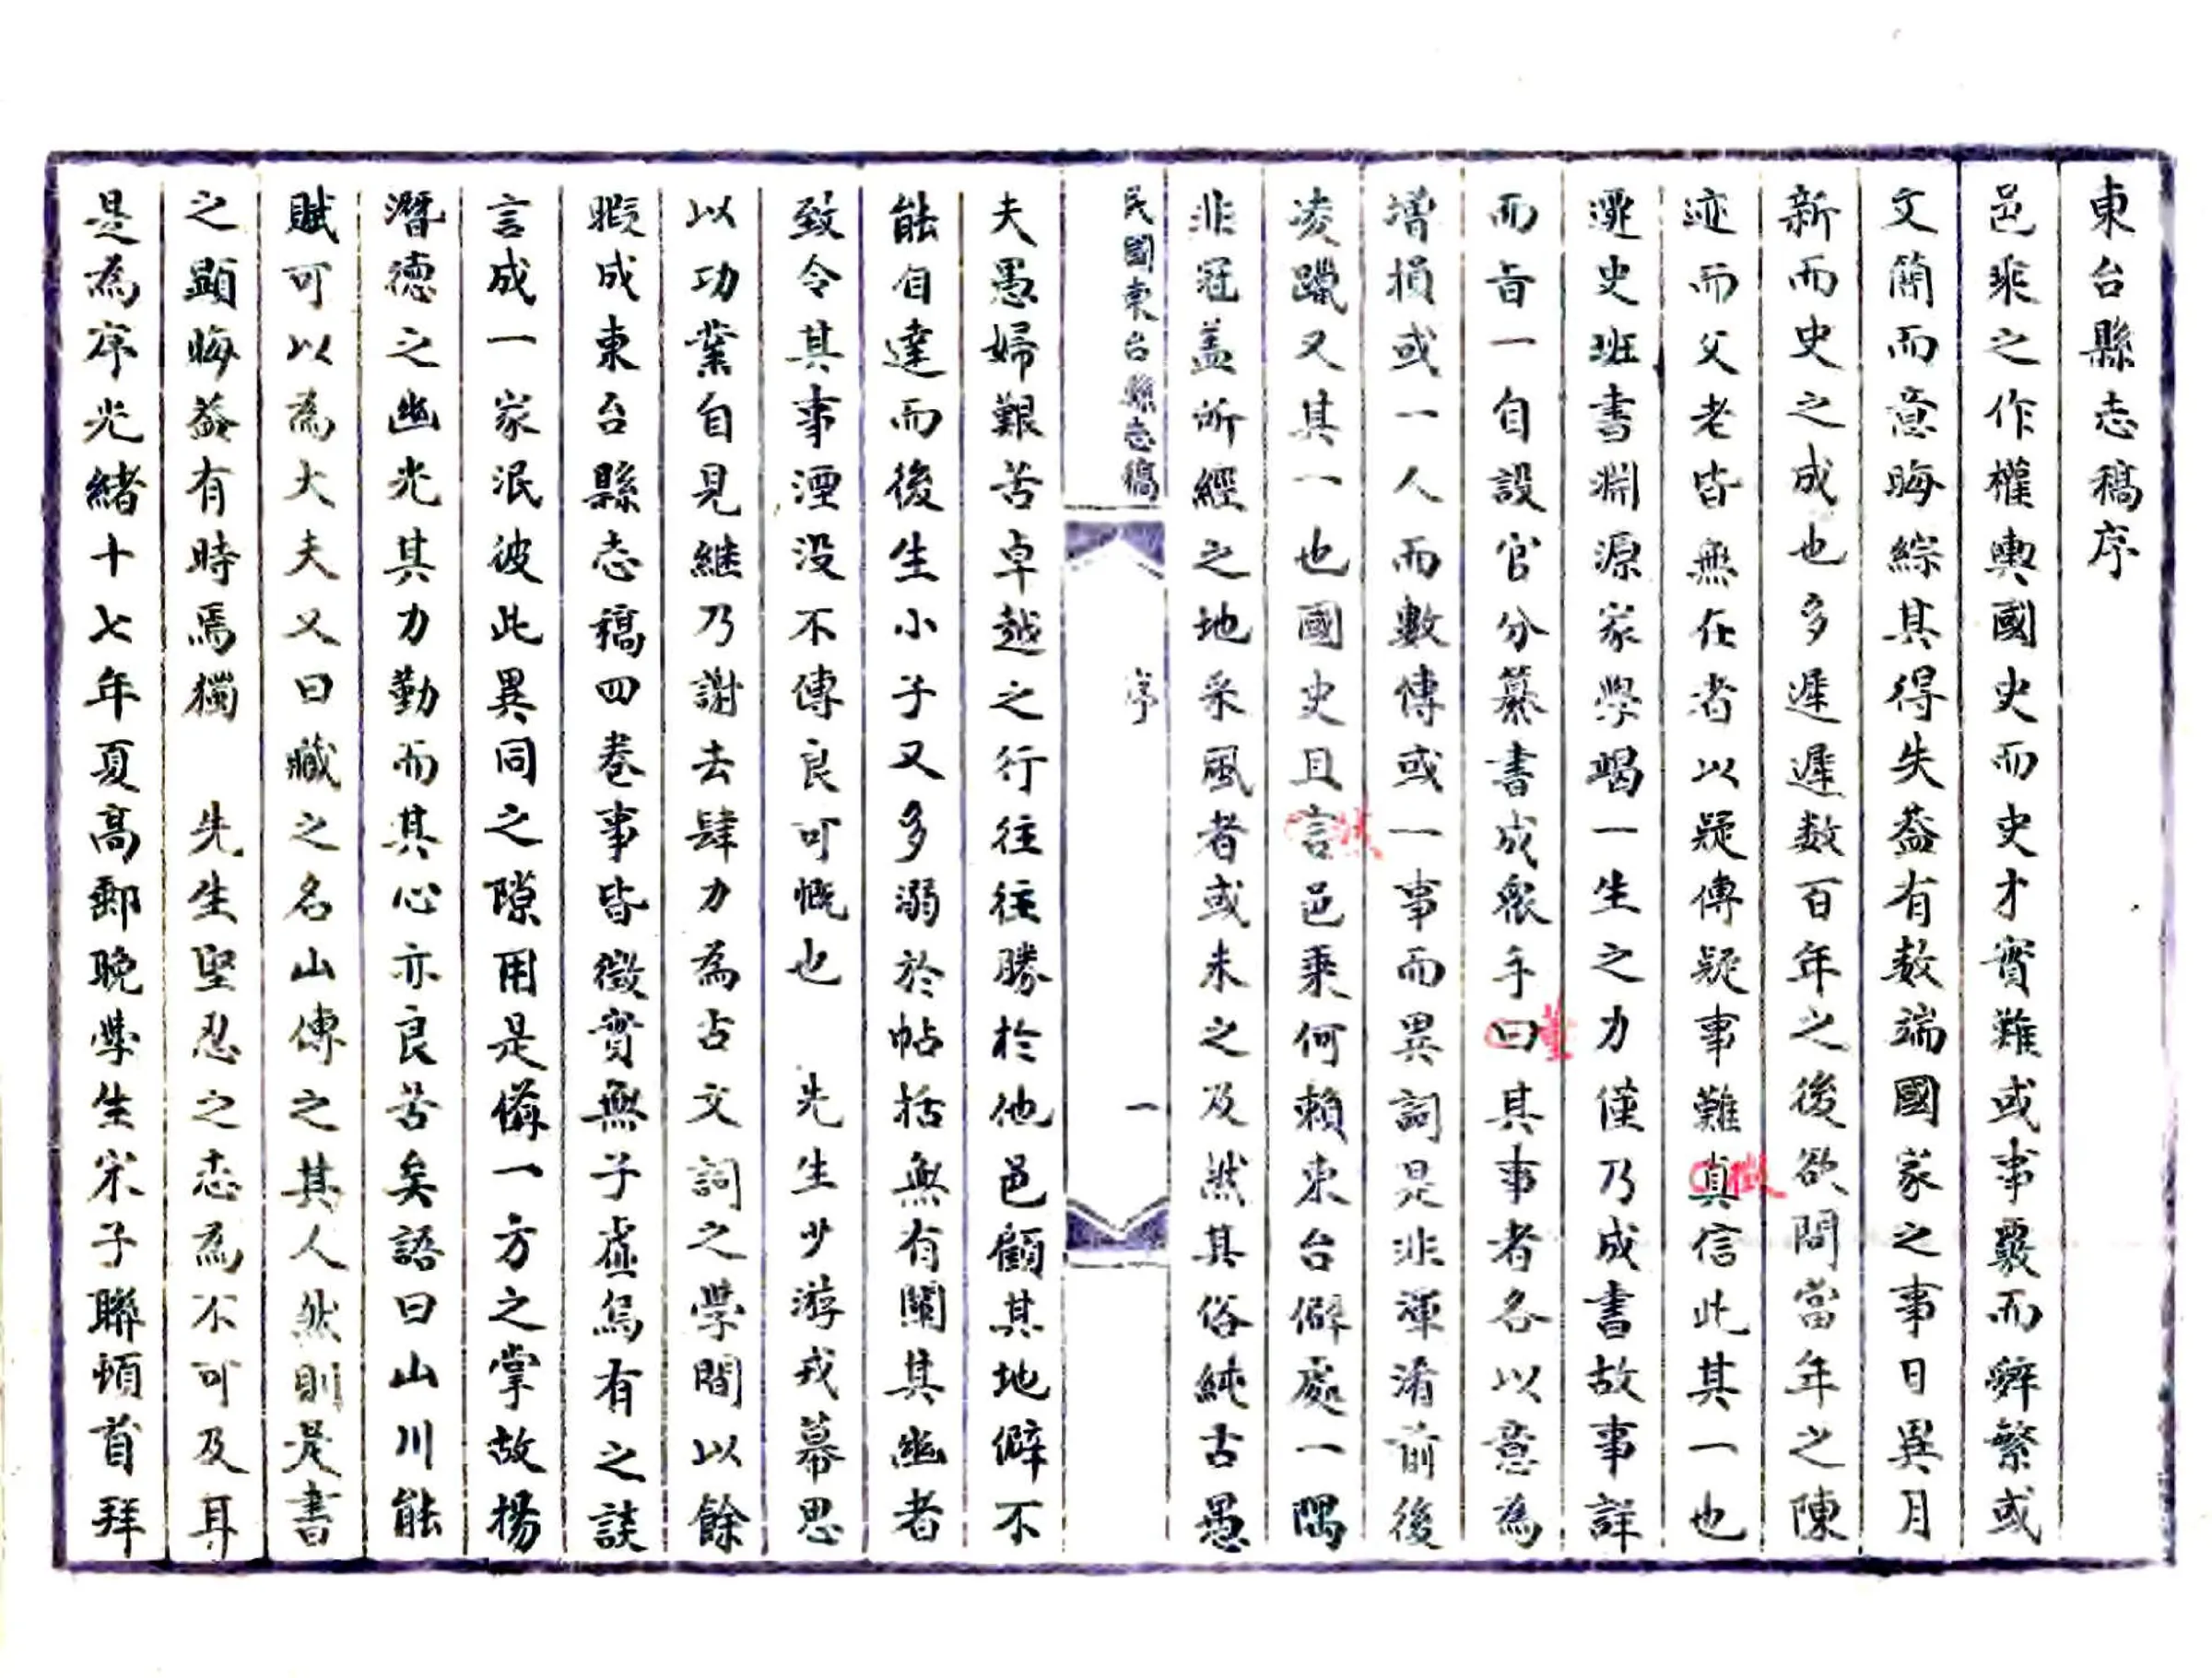 東台縣志稿序
邑乘之作權輿國史而史才實難或事覈而辭繁或
文簡而意晦綜其得失葢有数端國家之事日異月
新而史之成也多遲遲数百年之後欲問當年之陳
迹而父老皆無在者以疑傳疑事難真信此其一也
徵
遷史班書淵源家學竭一生之力僅乃成書故事詳
而旨一自設官分纂書成眾手曰其事者各以意為
董
增損或一人而數傳或一事而異詞是非渾淆前後
凌躐又其一也國史且言邑乘何賴東台僻處一隅
然
非冠盖所經之地采風者或未之及然其俗純古愚
民國東台縣志稿
序
一
夫愚婦艱苦卓越之行往往勝於他邑顧其地僻不
能自達而後生小子又多溺於帖括無有闡其幽者
致令其事湮没不傳良可慨也 先生少游戎幕思
以功業自見継乃謝去肆力為古文詞之學間以餘
暇成東台縣志稿四卷事皆徵實無子虛烏有之談
言成一家泯彼此異同之隙用是備一方之掌故揚
潛德之幽光其力勤而其心亦良苦矣語曰山川能
賦可以為大夫又曰藏之名山傳之其人然則是書
之顯晦葢有時焉獨 先生堅忍之志為不可及耳
是為序光緒十七年夏高郵晚學生宋子聯頓首拜